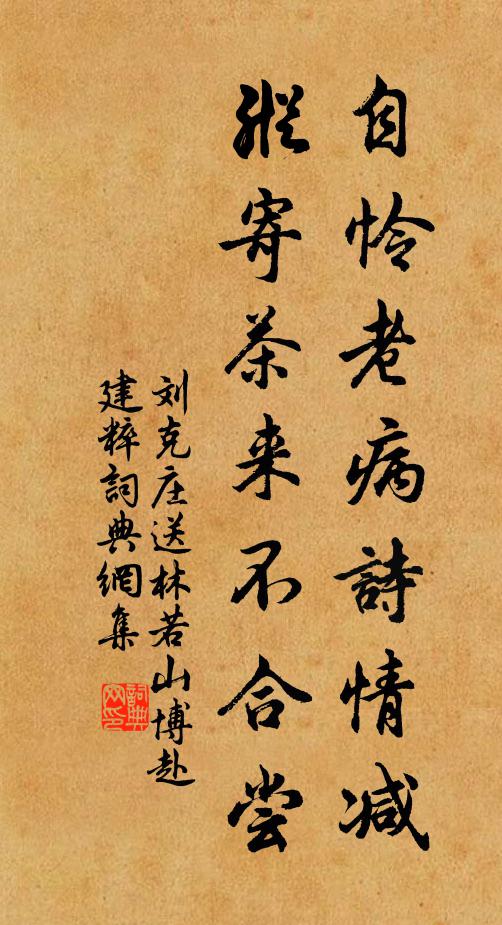 自怜老病詩情减
縱寄茶来不合尝
刘克庄送林若山博赴
建粹詞典網集
詞典网印